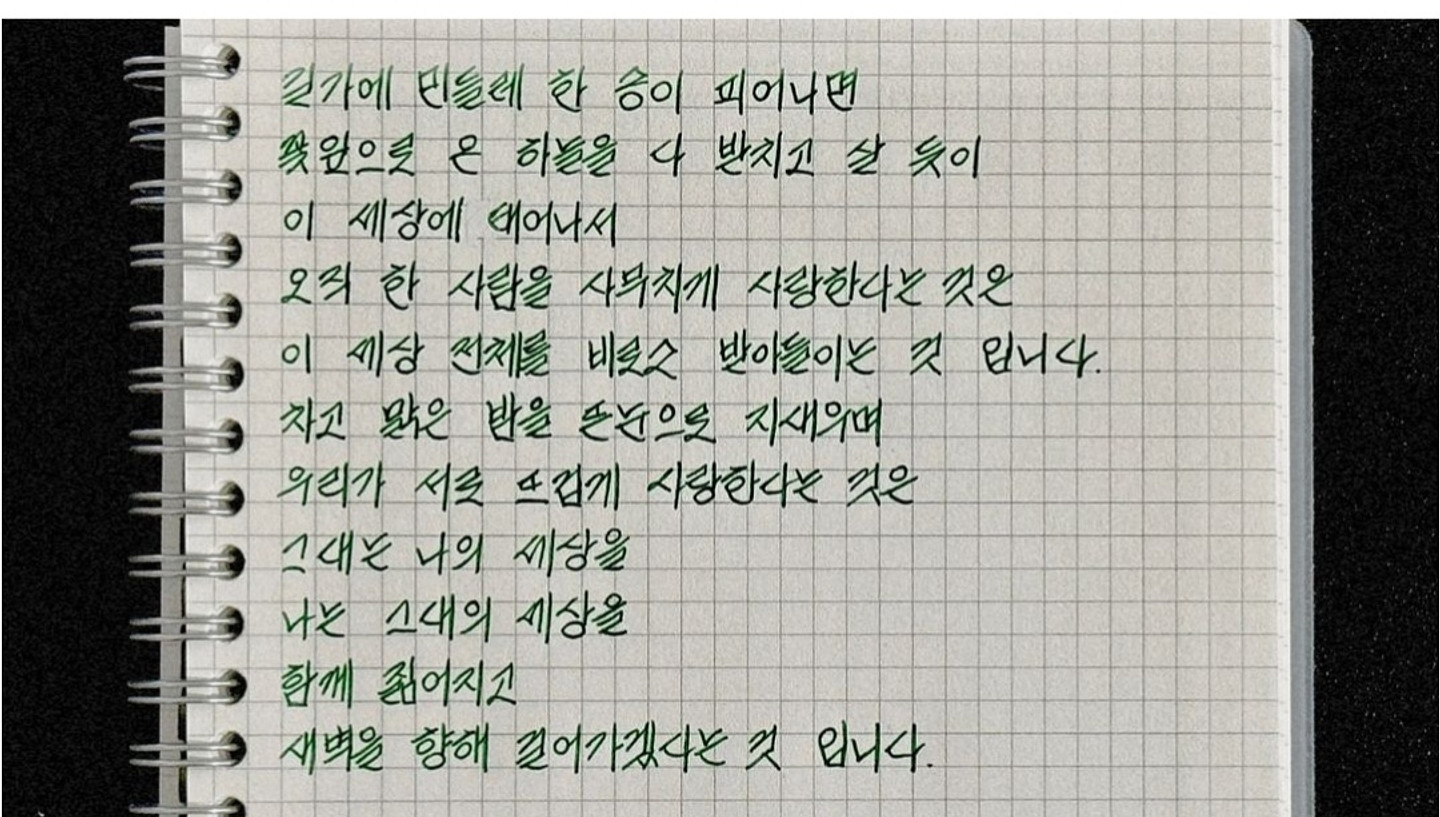 길가에 민들레 한 송이 피어나면
꽃잎으로 온 하늘을 다 받치고 살 듯이
이 세상에 태어나서
오직 한 사람을 사무치게 사랑한다는 것은
이 세상 전체를 비로소 받아들이는 것 입니다.
차고 맑은 밤을 뜬눈으로 지새우며
우리가 서로 뜨겁게 사랑한다는 것은
그대는 나의 세상을
나는 그대의 세상을
함께 짊어지고
새벽을 향해 걸어가겠다는 것 입니다.